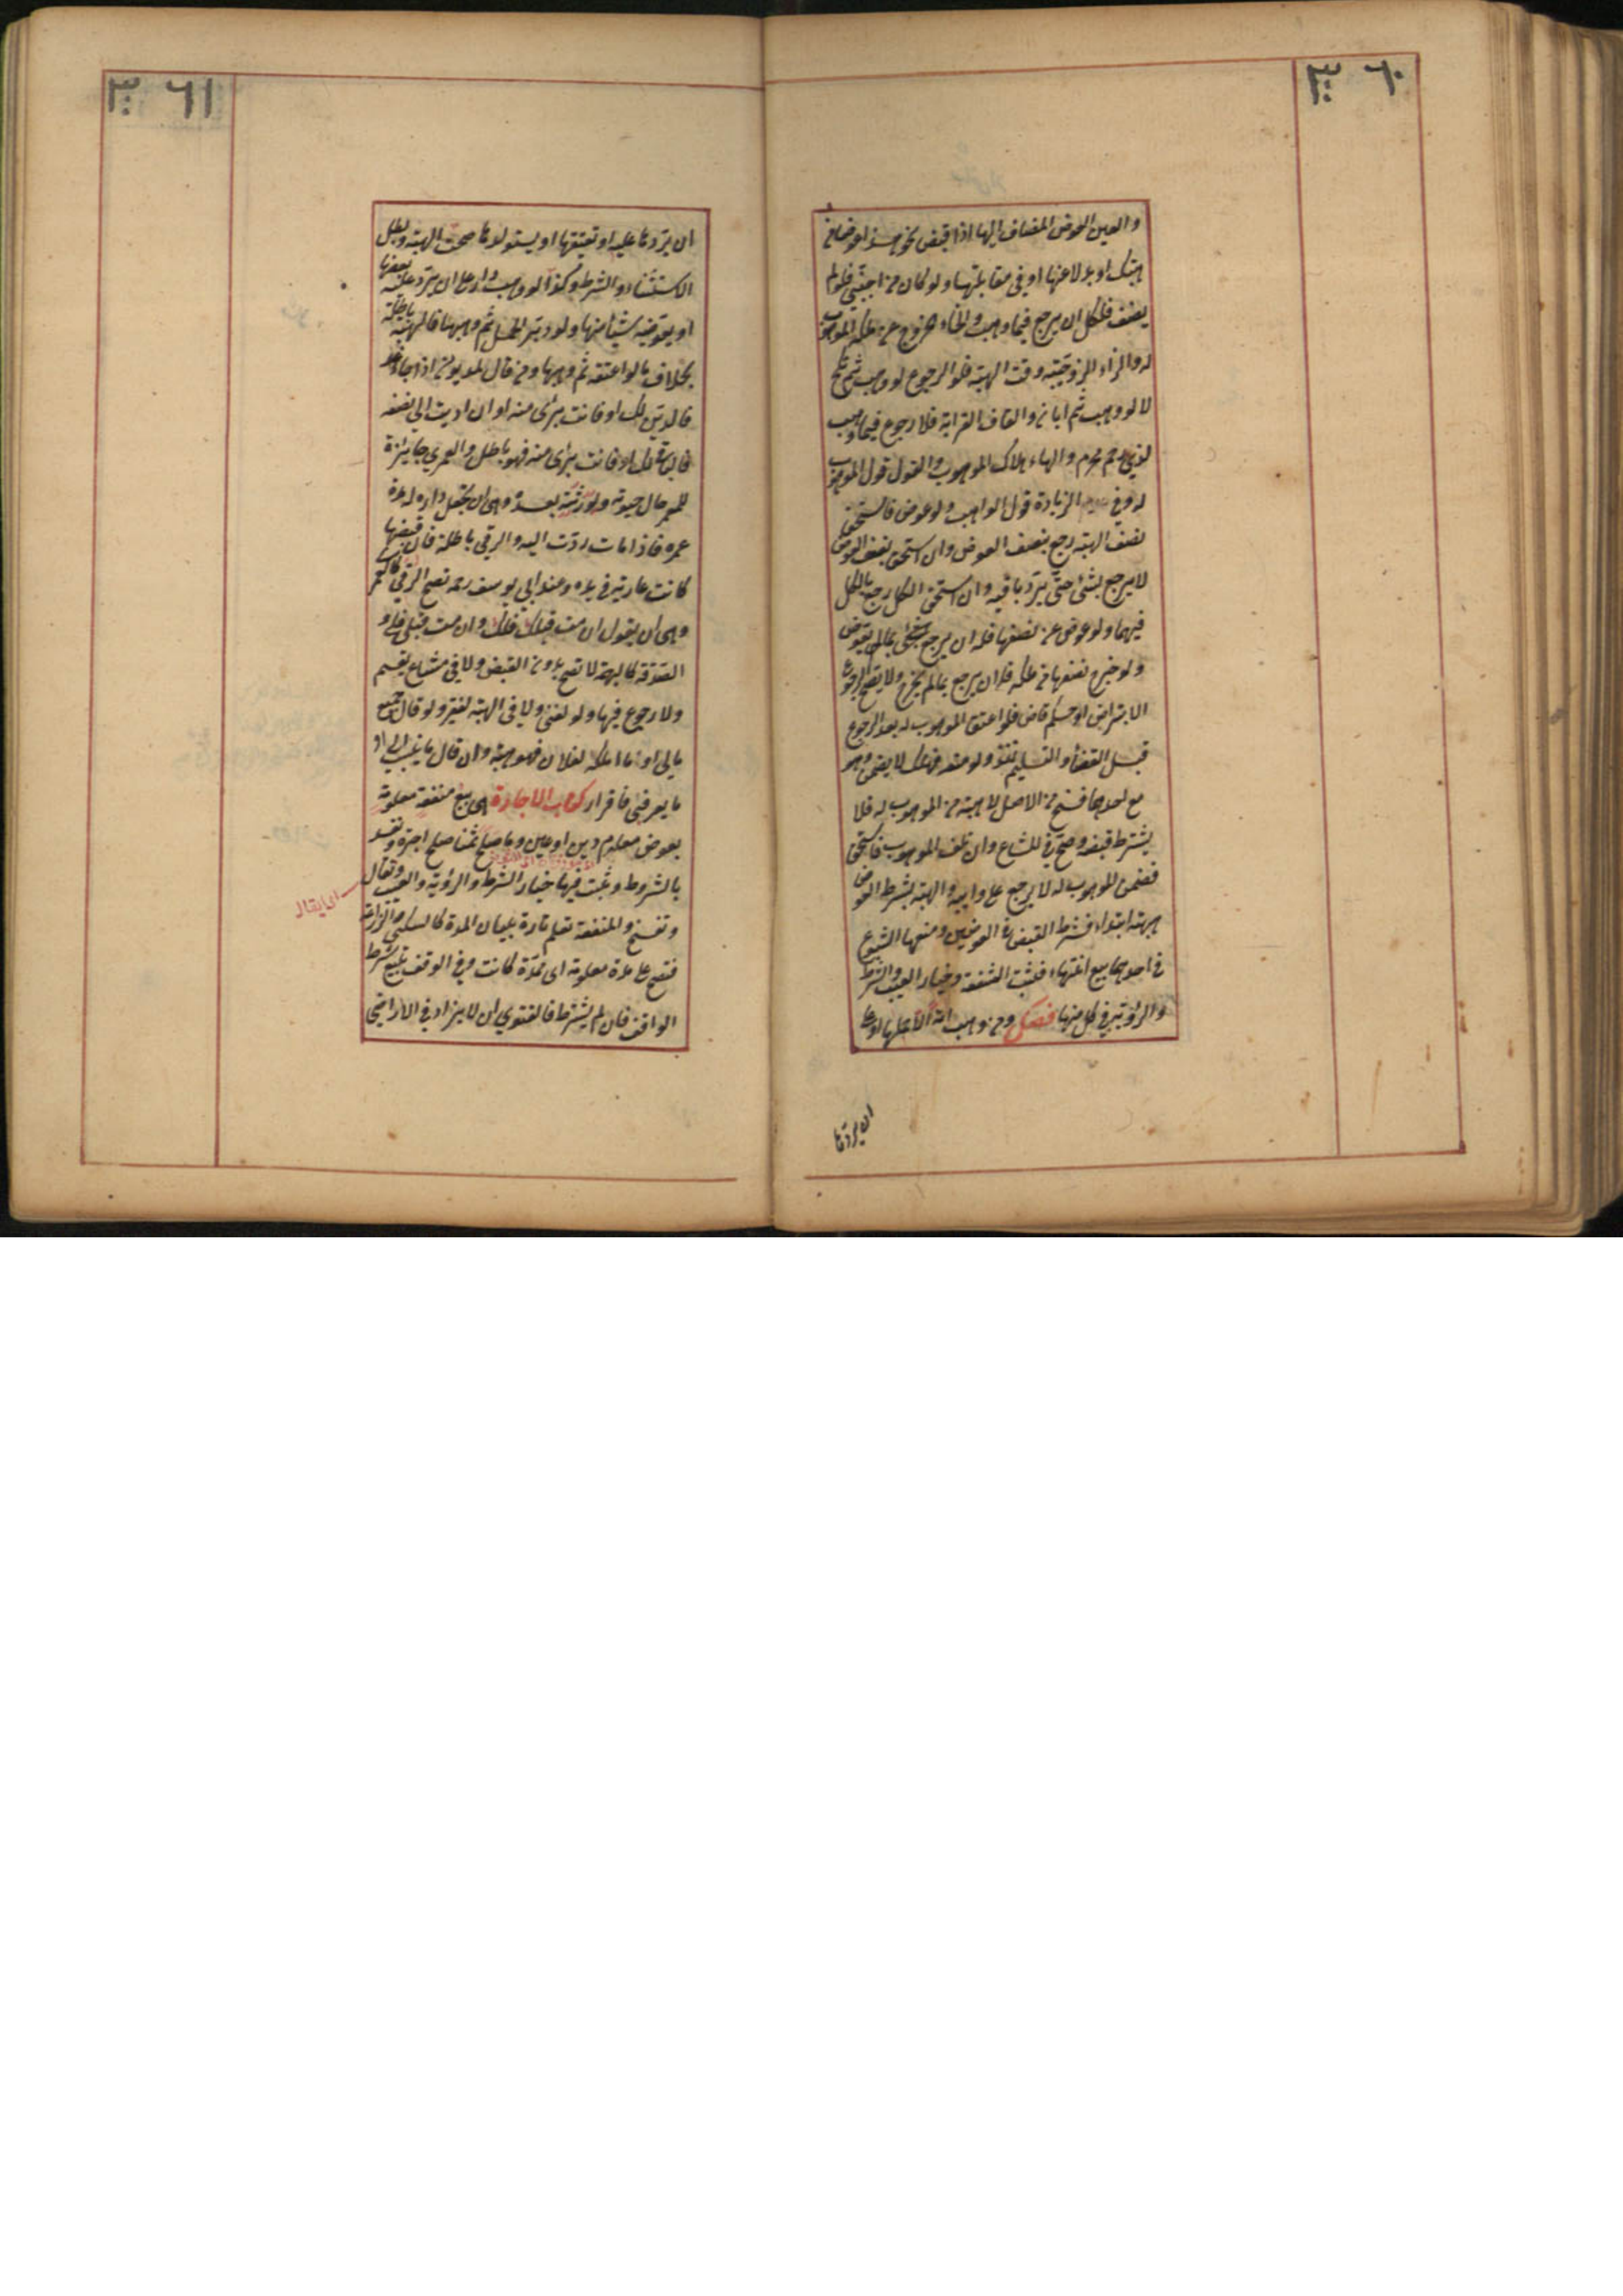 ٣٦٠
والعين العوض المضاف اليها اذا قبض نحو هذا عوضا عن
هبتك او بدلا عنها او في مقابلتها ولو كان من اجنبي فلو لم
يضف فلكل ان يرجع فيما وهب والخاء خروج عن ملك الموهوب
له والزاء الزوجية وقت الهبة فله الرجوع لو وهب ثم نكح
لا لو وهب ثم ابان والقاف القرابة فلا رجوع فيما وهب
لذي رحم محرم والهاء هلاك الموهوب والقول قول الموهوب
له وفي الزيادة قول الواهب ولو عوض فاستحق
نصف الهبة رجع بنصف العوض وان استحق نصف العوض
لا يرجع بشئ حتى يرد باقيه وان استحق الكل رجع بالكل
فيهما ولو عوض عن نصفها فله ان يرجع بما لم يعوض
ولو خرج نصفها عن ملكه فله ان يرجع بما لم يخرج ولا يصح الرجوع
الا بتراض او حكم قاض فلو اعتق الموهوب له بعد الرجوع
قبل القضاء والتسليم نفذ ولو منعه فهلك لا يضمن وهو
مع احدهما فسخ من الاصل لا هبة من الموهوب له فلا
يشترط قبضه وصح في المشاع وان تلف الموهوب فاستحق
فضمن الموهوب له لا يرجع على واهبه والهبة بشرط العوض
هبة ابتداء فشرط القبض في العوضين ومنعها الشيوع
في احدهما بيع انتهاء فتثبت الشفعة وخيار العيب والشرط
والرؤية في كل منها فصل ومن وهب امة الا حملها او على
ان يردها
٣٦١
ان يردها عليه او يعتقها او يستولدها صحت الهبة وبطل
الاستثناء والشرط وكذا لو وهب دارا على ان يرد عليه بعضها
او يعوضه شيئا منها ولو دبر الحمل ثم وهبها فالهبة باطلة
بخلاف ما لو اعتقه ثم وهبها ومن قال لمديونه اذا جاء غد
فالدين لك او فانت برئ منه او ان اديت الي نصفه
فالباقي لك او فانت برئ منه فهو باطل والعمري جايزة
للمعمر حال حيوته ولورثته بعده وهي ان يجعل داره له مدة
عمره فاذا مات ردت اليه والرقبي باطلة فان قبضها
كانت عارية في يده وعند ابي يوسف رحمه تصح الرقبي كالعمري
وهي ان يقول ان مت قبلك فلك وان مت قبلي فلي و
الصدقة كالهبة لا تصح بدون القبض ولا في مشاع يقسم
ولا رجوع فيها ولو لغني ولا في الهبة لفقير ولو قال جميع
مالي او ما املكه لفلان فهو هبة وان قال ما ينسب الي او
ما يعرف بي فاقرار كتاب الاجارة هي بيع منفعة معلومة
بعوض معلوم دين او عين وما صلح ثمنا صلح اجرة وتفسد
بالشروط وثبت فيها خيار الشرط والرؤية والعيب وتقال
اى يقال
وتفسخ والمنفعة تعلم تارة ببيان المدة كالسكنى والزراعة
فتصح على مدة معلومة اى مدة كانت وفي الوقف يتبع شرط
الواقف فان لم يشترط فالفتوي ان لا يزاد في الاراضي